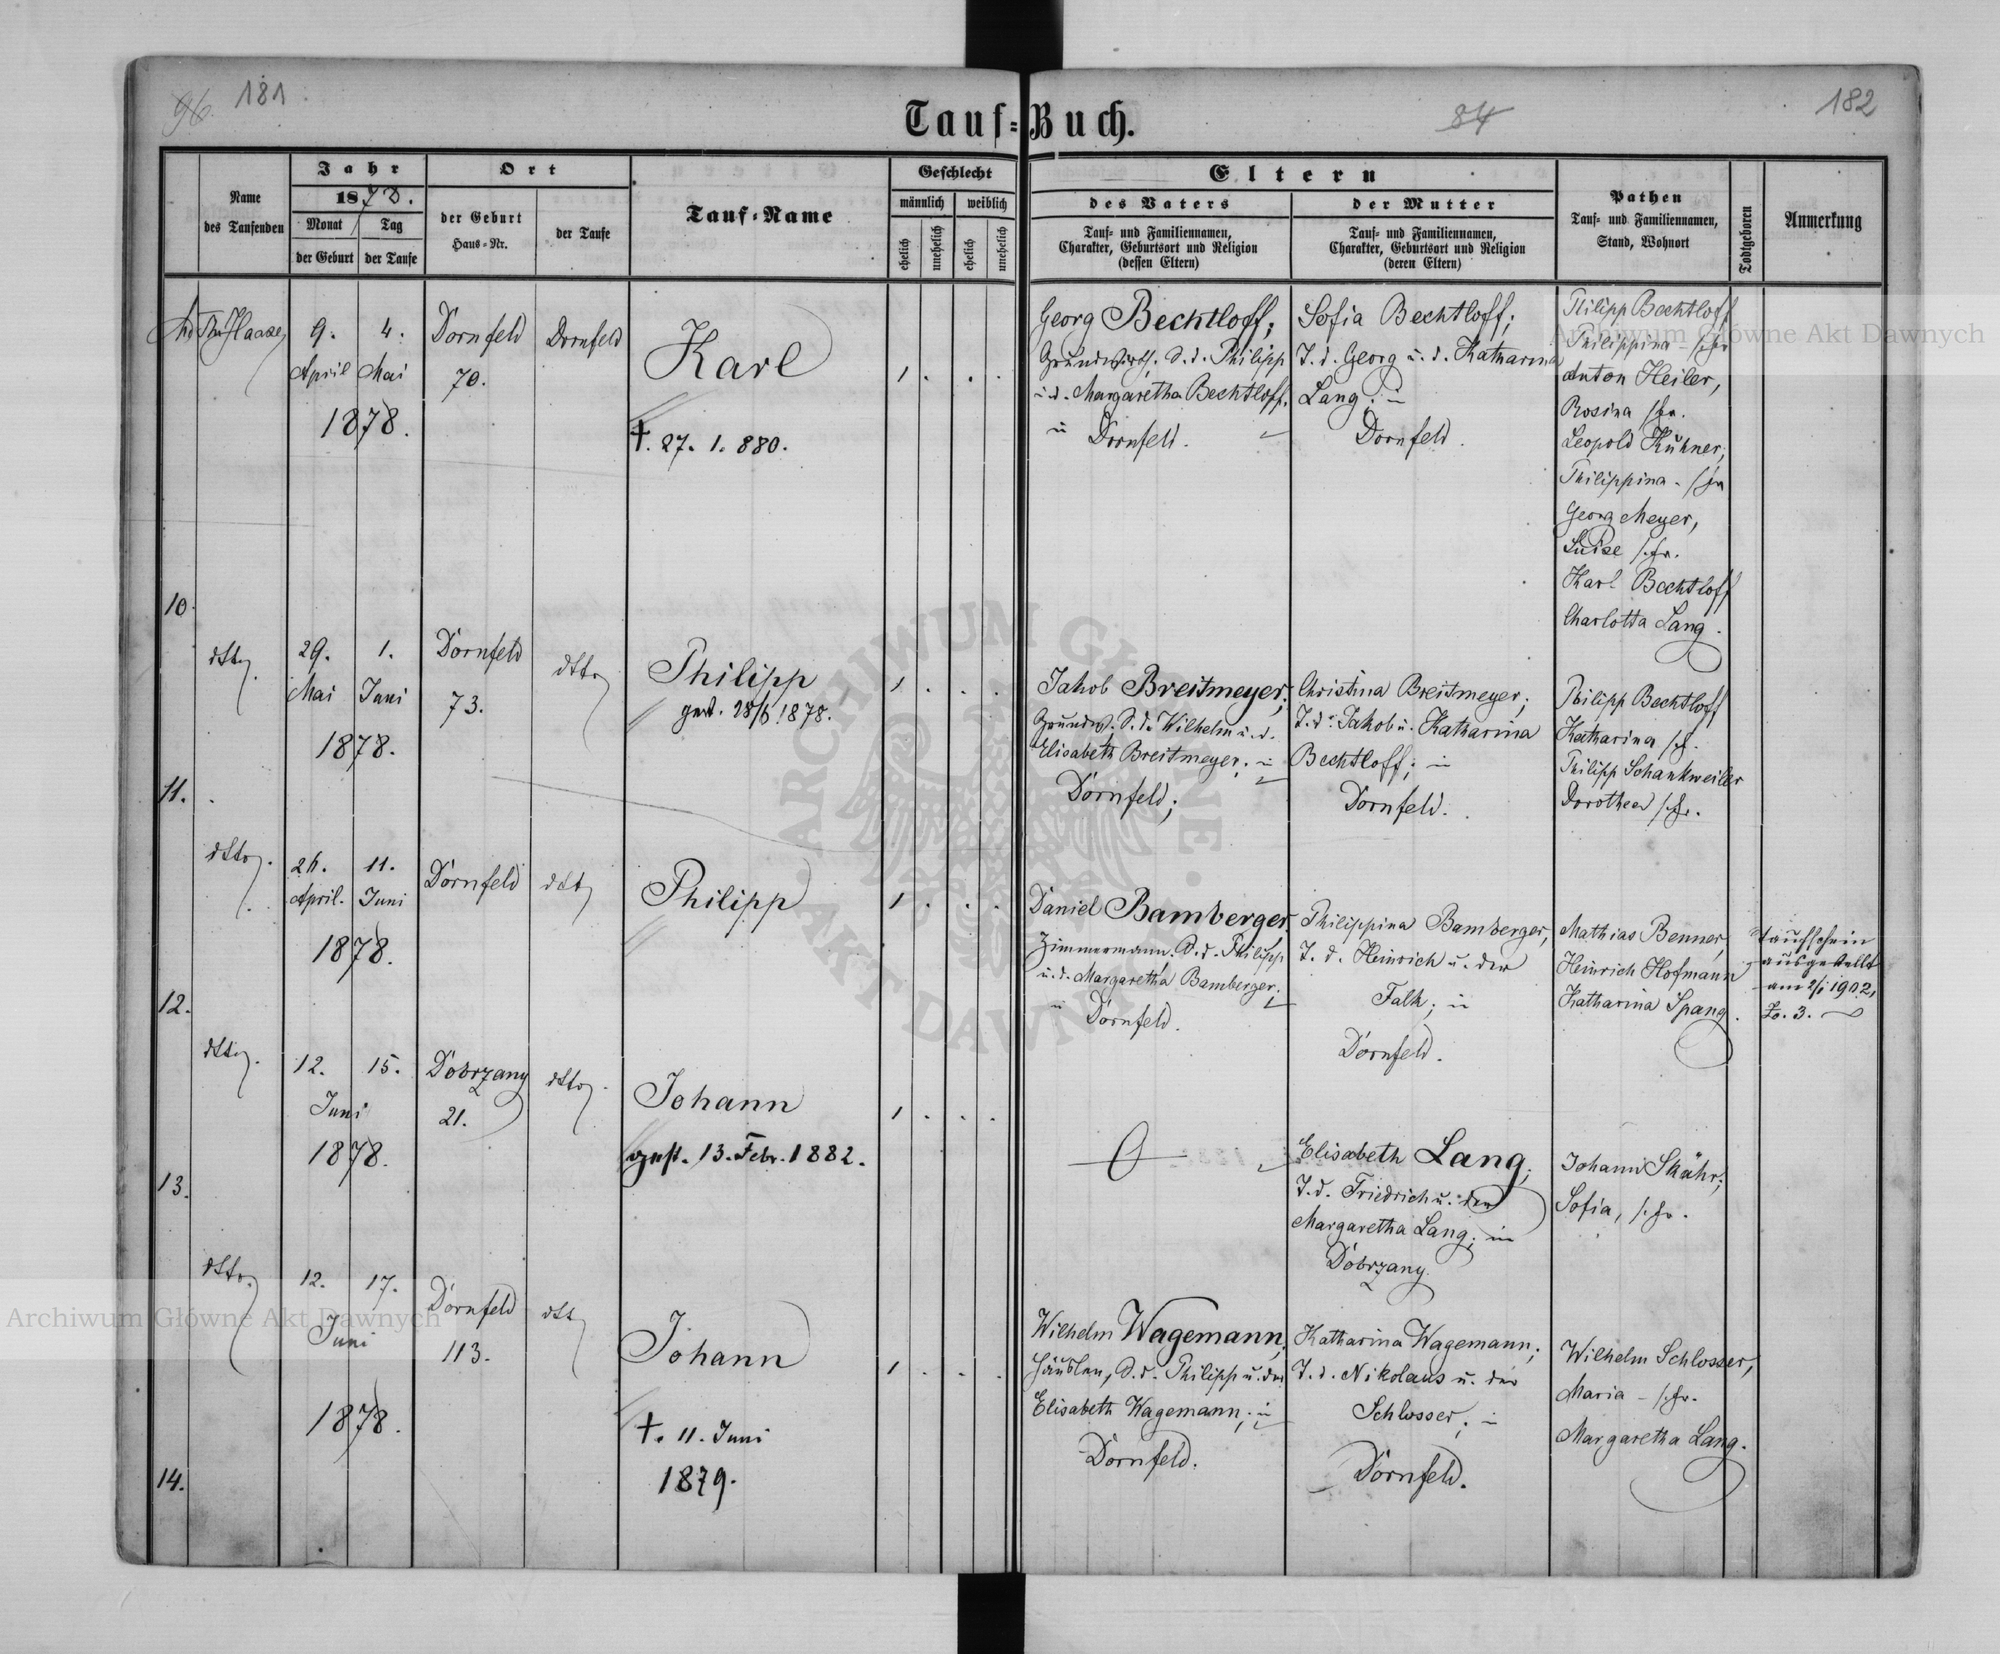 96. 181.
Tauf-Buch.
84
182
Name
des Taufenden
Jahr
1878.
Monat
der Geburt
Tag
der Taufe
Ort
der Geburt
Haus-Nr.
der Taufe
Tauf-Name
Geschlecht
männlich
weiblich
ehelich
unehelich
ehelich
unehelich
Eltern
des Vaters
Tauf- und Familiennamen,
Charakter, Geburtsort und Religion
(dessen Eltern)
der Mutter
Tauf- und Familiennamen,
Charakter, Geburtsort und Religion
(deren Eltern)
Pathen
Tauf- und Familiennamen,
Stand, Wohnort
Todtgeboren
Anmerkung
10.
Haase
9. April
4. Mai
1878.
Dornfeld
70.
Dornfeld
Karl
†. 27. 1. 880.
1 . . .
Georg Bechtloff;
Grundwirth, S. d. Philipp
u. d. Margaretha Bechtloff.
in Dornfeld.
Sofia Bechtloff;
T. d. Georg u. d. Katharina
Lang; in
Dornfeld.
Philipp Bechtloff
Philippina - s. fr.
Anton Heiler,
Rosina s. fr.
Leopold Kühner,
Philippina - s. fr
Georg Meyer,
Luise s. fr.
Karl Bechtloff
Charlotta Lang.
11.
dtto.
29. Mai
1. Juni
1878.
Dornfeld
73.
dtto
Philipp
gest. 28/6 1878.
1 . . .
Jakob Breitmeyer;
Grundw. S. d. Wilhelm u. d.
Elisabeth Breitmeyer; in
Dornfeld;
Christina Breitmeyer;
T. d. Jakob u. Katharina
Bechtloff; in
Dornfeld.
Philipp Bechtloff
Katharina s. f.
Philipp Schankweiler
Dorothea s. fr.
12.
dtto.
26. April.
11. Juni
1878.
Dornfeld
dtto
Philipp
1 . . .
Daniel Bamberger
Zimmermann, S. d. Philipp
u. d. Margaretha Bamberger;
in Dornfeld.
Philippina Bamberger,
T. d. Heinrich u. der
Falk; in
Dornfeld.
Mathias Benner,
Heinrich Hofmann
Katharina Spang.
Taufschein
ausgestellt
am 2/1 1902,
Zo. 3.
13.
dtto.
12. Juni
15.
1878.
Dobrzany
21.
dtto.
Johann
gest. 13. Febr. 1882.
1 . . .
Elisabeth Lang;
T. d. Friedrich u. der
Margaretha Lang; in
Dobrzany.
Johann Skähr;
Sofia, s. fr.
14.
dtto.
12. Juni
17.
1878.
Dornfeld
113.
dtt
Johann
†. 11. Juni
1879.
1 . . .
Wilhelm Wagemann,
Häusler, S. d. Philipp u. der
Elisabeth Wagemann; in
Dornfeld.
Katharina Wagemann;
T. d. Nikolaus u. der
Schlosser; in
Dornfeld.
Wilhelm Schlosser,
Maria - s. fr.
Margaretha Lang.
Archiwum Główne Akt Dawnych
Archiwum Główne Akt Dawnych
ARCHIWUM GŁÓWNE
AKT DAWNYCH